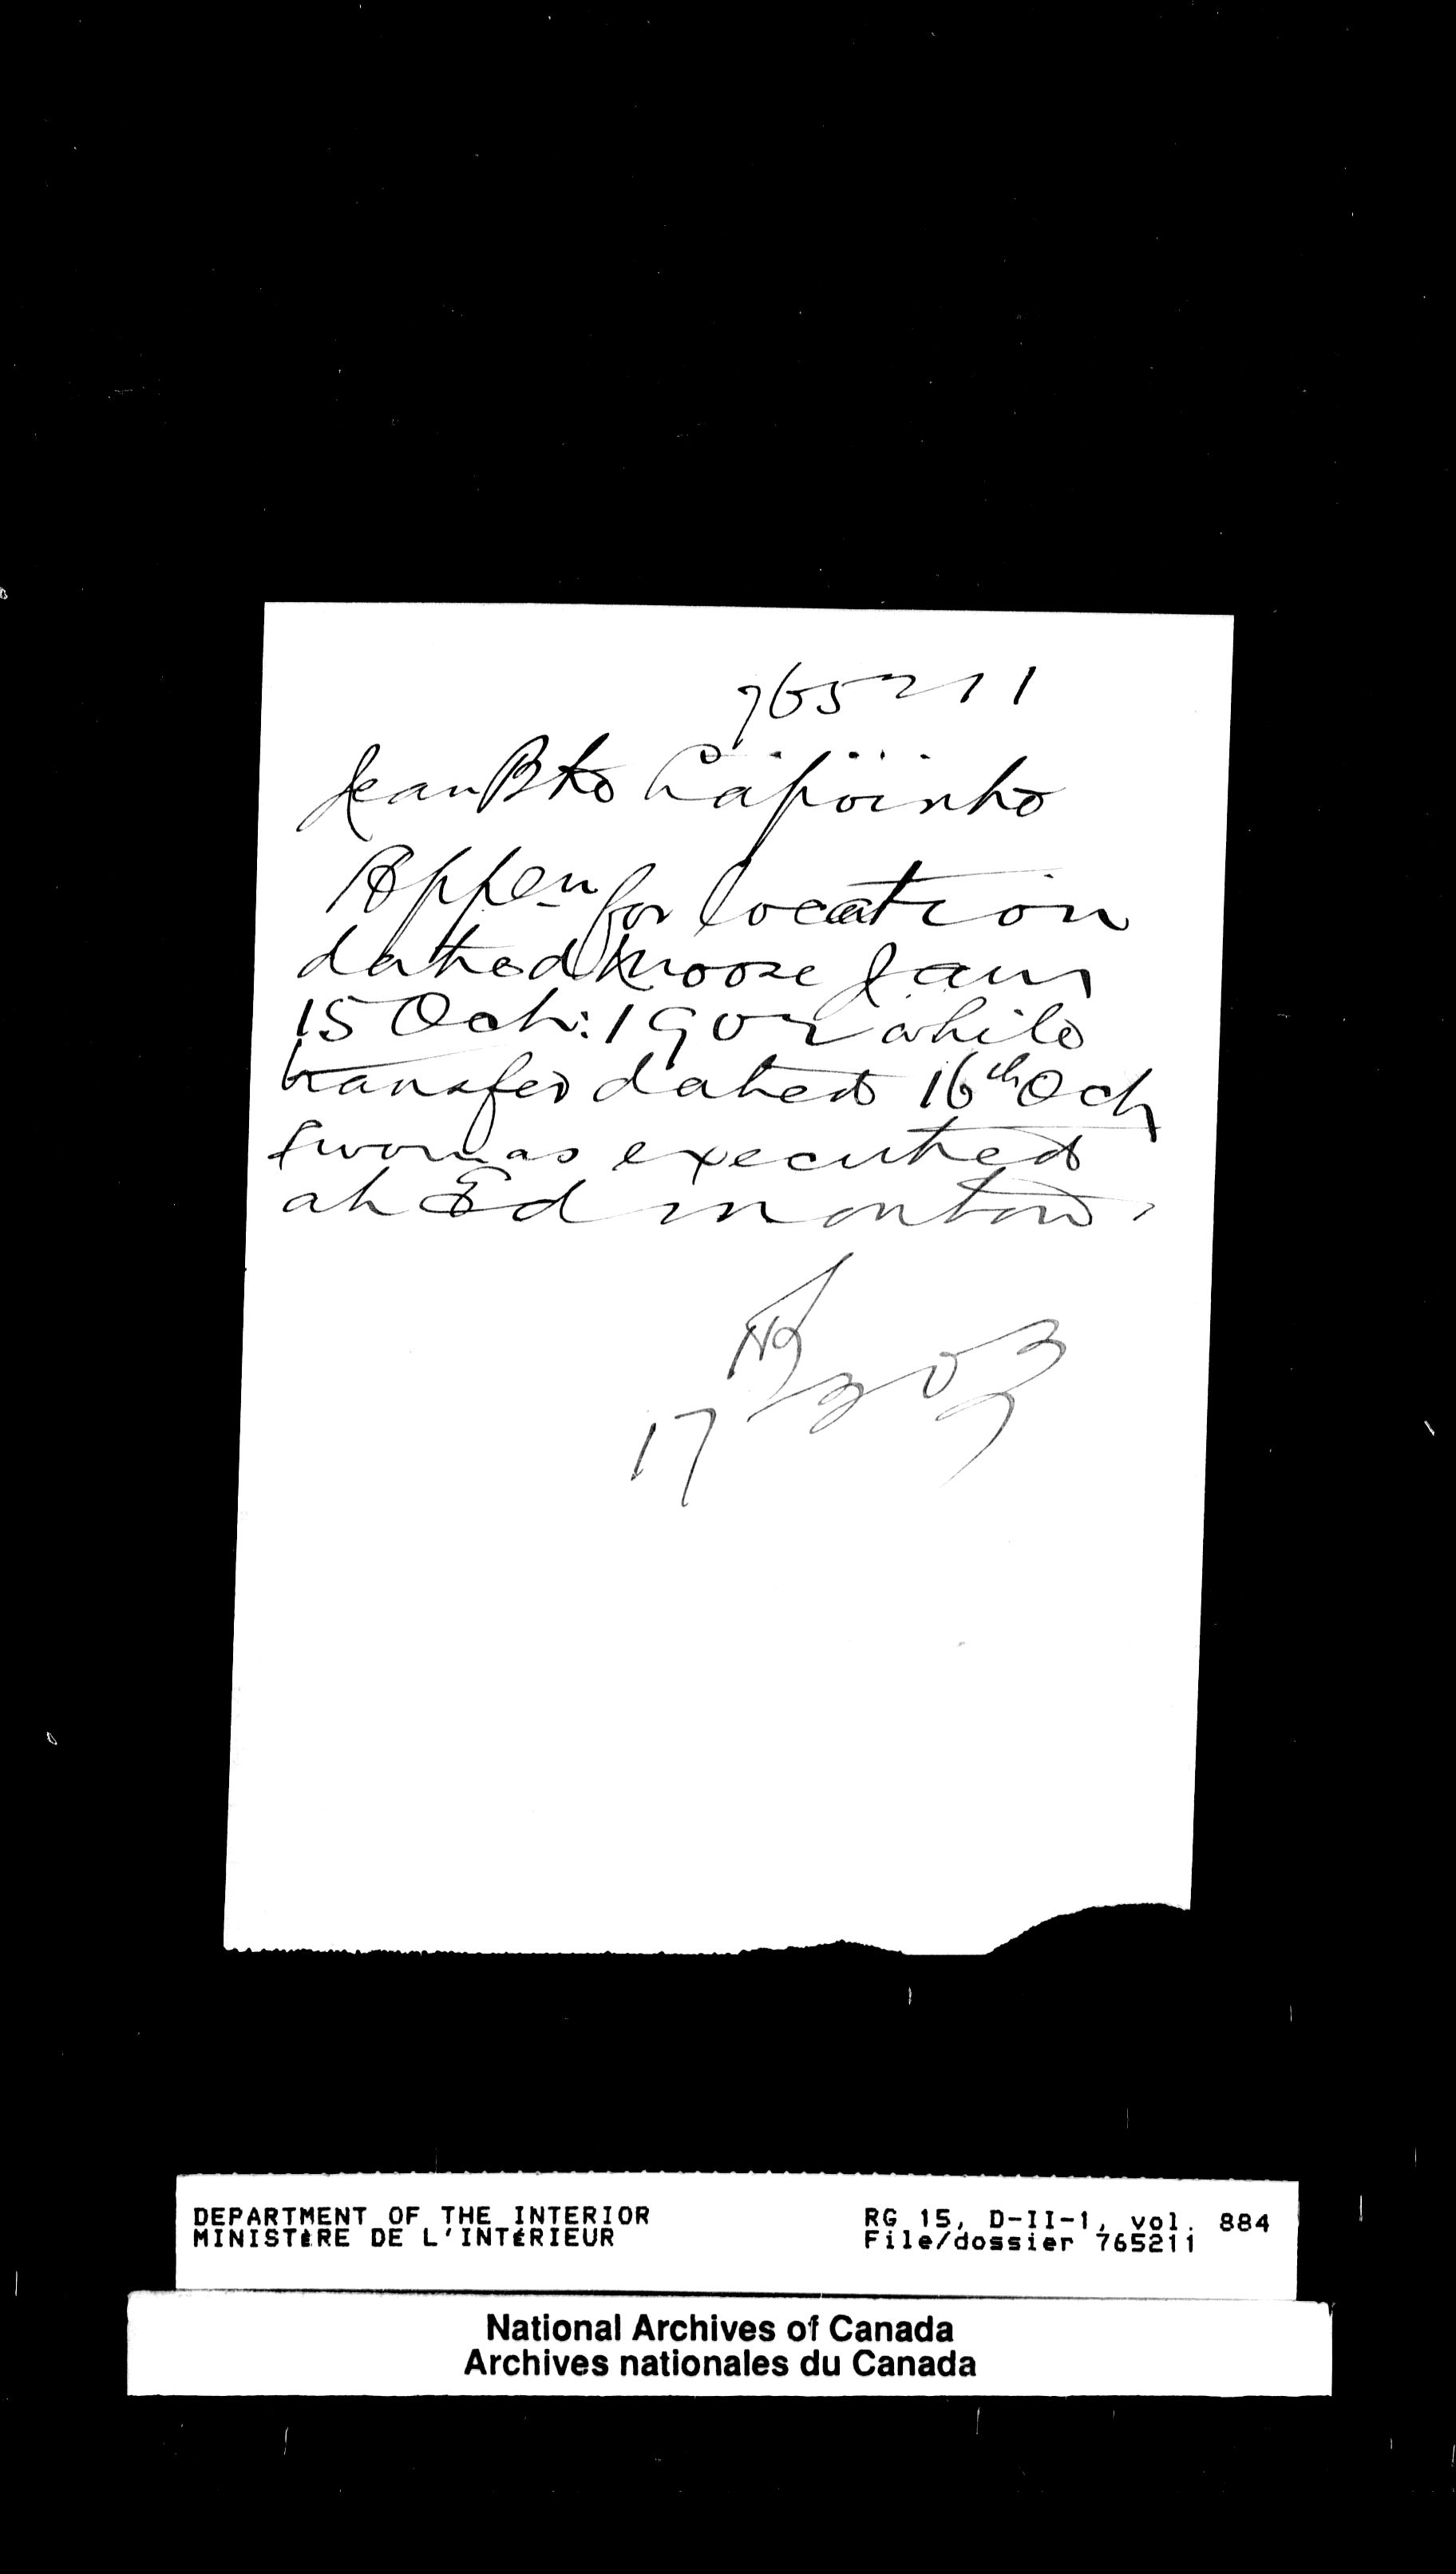 765211
Jean Bte Lapointe
Appln for location
dated Moose Jaw
15 Oct: 1902 while
transfer dated 16th Oct
was executed
at Edmonton.
17 3 03
DEPARTMENT OF THE INTERIOR RG 15, D-II-1, vol. 884
MINISTÈRE DE L'INTÉRIEUR File/dossier 765211
National Archives of Canada
Archives nationales du Canada